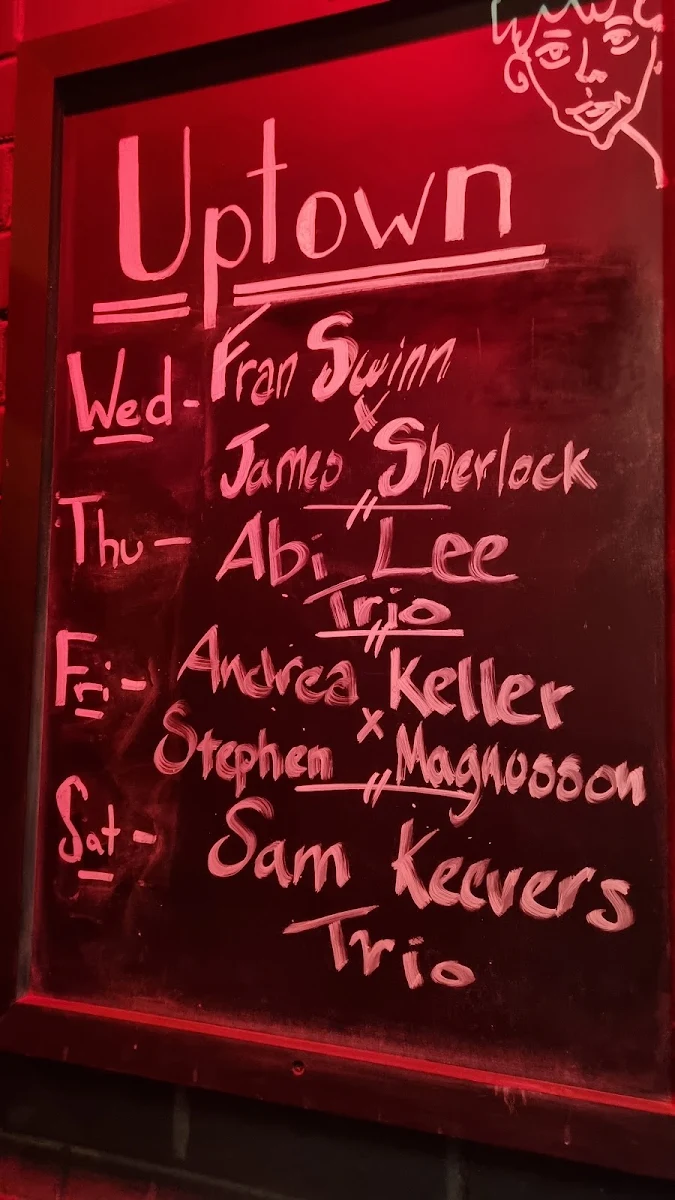 Uptown
Wed - Fran Swinn
x
James Sherlock
Thu - Abi Lee
Trio
Fri - Andrea Keller
x
Stephen Magnusson
Sat - Sam Keevers
Trio